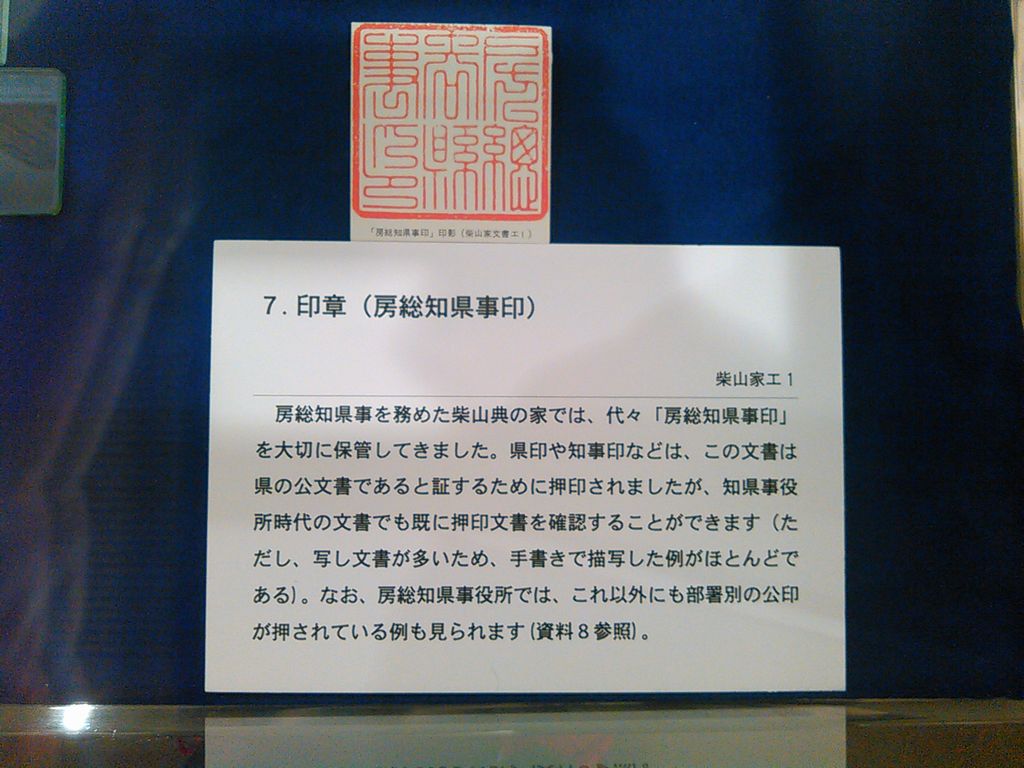 房總
知縣
事印
「房総知県事印」印影（柴山家文書エ1）
7. 印章（房総知県事印）
柴山家エ1
房総知県事を務めた柴山典の家では、代々「房総知県事印」
を大切に保管してきました。県印や知事印などは、この文書は
県の公文書であると証するために押印されましたが、知県事役
所時代の文書でも既に押印文書を確認することができます（た
だし、写し文書が多いため、手書きで描写した例がほとんどで
ある）。なお、房総知県事役所では、これ以外にも部署別の公印
が押されている例も見られます(資料８参照)。